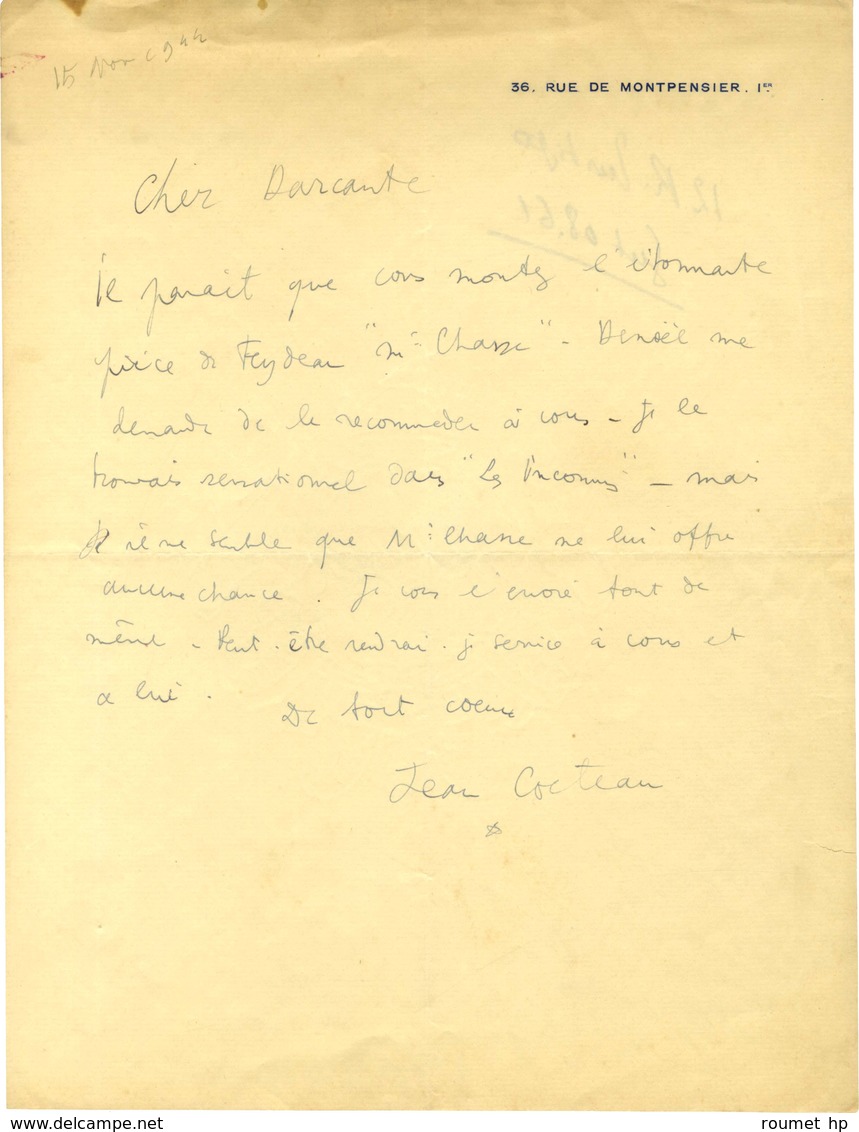 15 Nov 1944
36. RUE DE MONTPENSIER. IER
Cher Darcante
Il parait que vous montez l'étonnante
pièce de Feydeau "Mr Chasse" - Denoël me
demande de le recommander à vous - Je le
trouvais sensationnel dans "Les Inconnus" - mais
il me semble que Mr Chasse ne lui offre
aucune chance. Je vous l'envoie tout de
même - Peut-être rendrai-je service à vous et
a lui.
De tout coeur
Jean Cocteau
12 R.
08.61
roumet hp